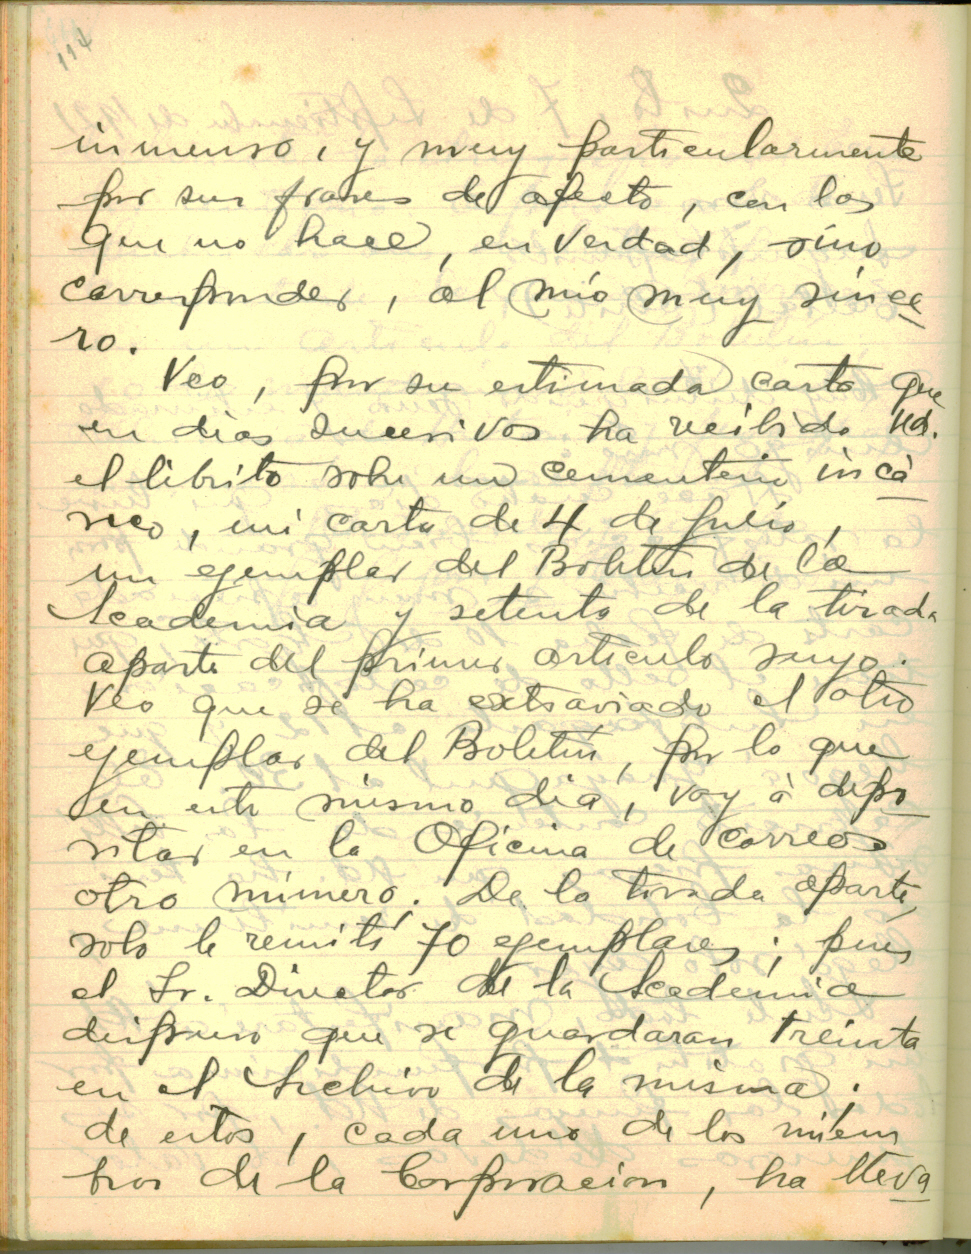 114
inmenso, y muy particularmente
por sus frases de afecto, con las
que no hace, en verdad, sino
corresponder, al mío muy since
ro.
Veo, por su estimada carta que
en días sucesivos ha recibido Ud.
el librito sobre un cementerio incá
sico, mi carta de 4 de Julio,
un ejemplar del Boletín de la
Academia y setenta de la tirada
aparte del primer artículo suyo.
Veo que se ha extraviado el otro
ejemplar del Boletín, por lo que
en este mismo día, voy á depo
sitar en la Oficina de Correos
otro número. De la tirada aparte,
solo le remití 70 ejemplares; pues
el Sr. Director de la Academia
dispuso que se guardaran treinta
en el Archivo de la misma;
de estos, cada uno de los miem
bros de la Corporación, ha lleva